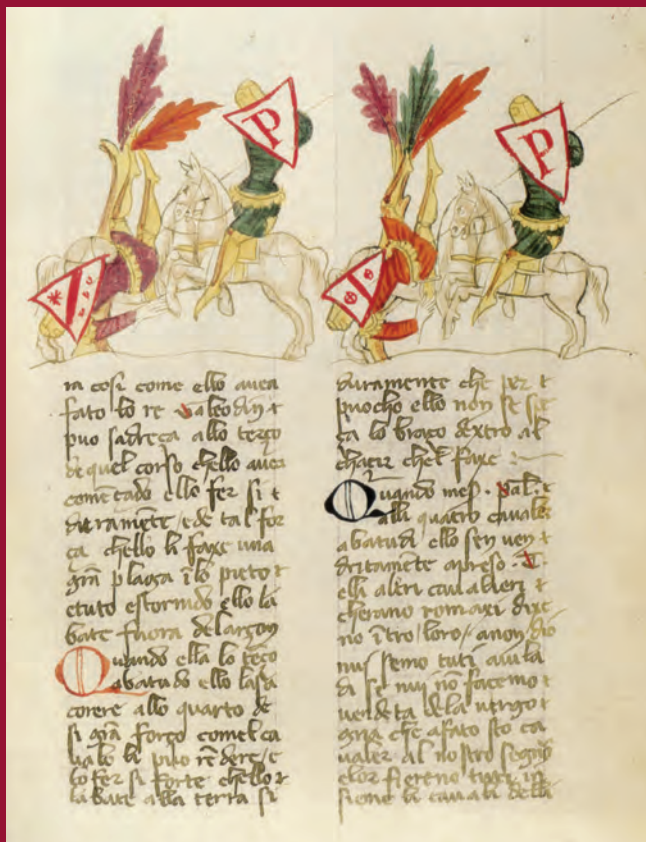 P
P
ra cosi come ello avea
fato lo re Galeodin e
puo sadreça allo terço
de quel corso chello avea
començado ello fer si
duramente e de tal for
ça chello li faxe una
gran plaga i lo pieto
e tuto estornido ello la
bate fuora de larçon
Quando ella lo terço
abatudo ello lassa
corere allo quarto de
si gran forço come lca
vallo li puo rendere / e
lo fer si forte chello
labate alla terra si
duramente che per
puocho ello non se speça
lo braço dextro al
chacer chel faxe
Quando mes. Pal.
alli quatro cavaler
abatudi ello sen ven
dritamente apreso. T.
elli altri cavalieri
cherano romaxi dixe
no itro loro / a non dio
nui semo tuti avila
di se nui non facemo
vendeta dela vergo
gna che a fato sto ca
valer al nostro segnor
elor fiereno tuti in
sieme li cavali delli